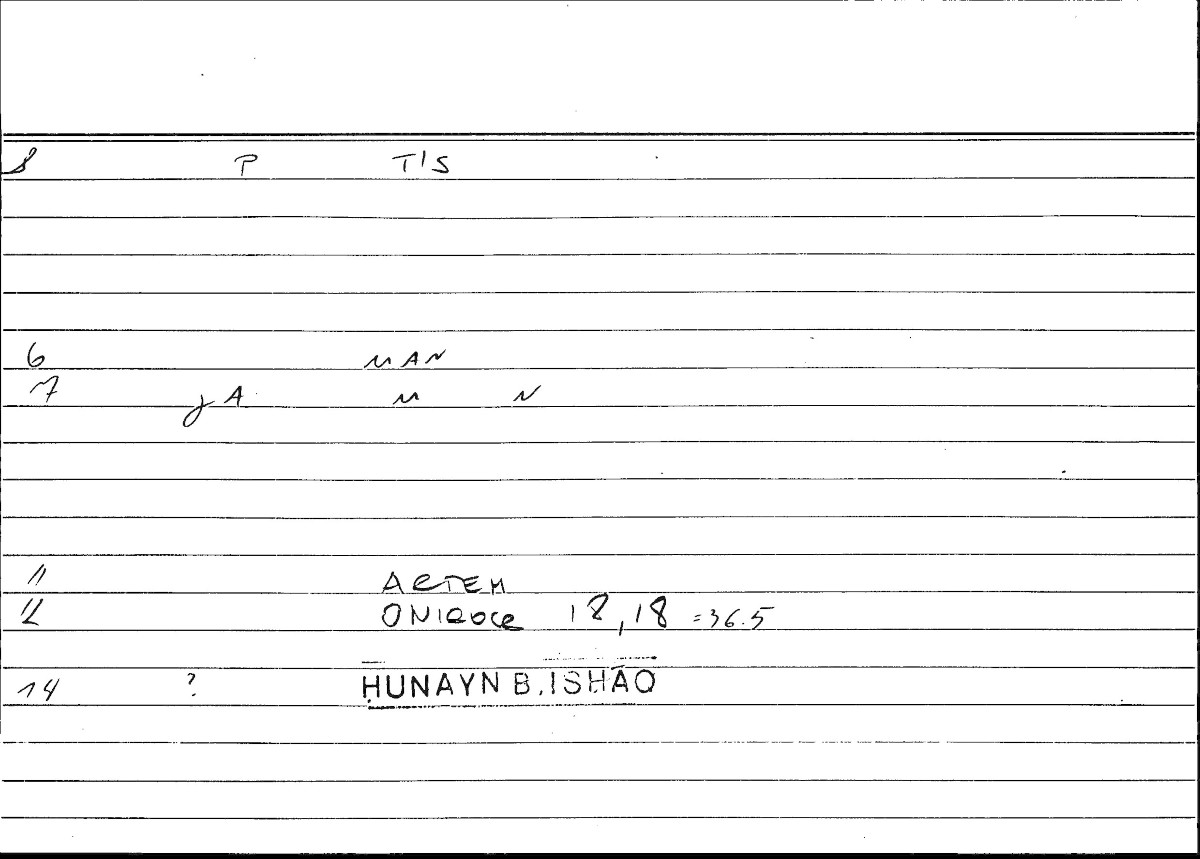 P T'S
6 MAN
7 JA M N
11 ARTEM
12 ONIROCR 18,18 =36.5
14 ? ḤUNAYN B.ISḤĀQ